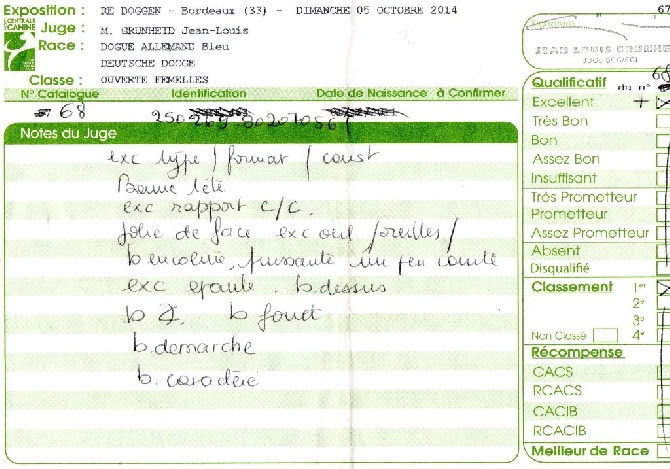 Exposition : RE DOGGEN - Bordeaux (33) - DIMANCHE 05 OCTOBRE 2014
67
CENTRALE
CANINE
Juge : M. GRUNHEID Jean-Louis
Race : DOGUE ALLEMAND Bleu
DEUTSCHE DOGGE
Classe : OUVERTE FEMELLES
Signature
JEAN LOUIS GRUNHE
N° Catalogue Identification Date de Naissance à Confirmer
68
Notes du Juge
exc type / format / const
Bonne tête
exc rapport C/C.
Jolie de face exc oeil / oreilles /
b encolure, puissante un peu
exc epaule. b. dessus
b b fouet
b. demarche
b. caractère
Qualificatif du n° 68
Excellent + X
Très Bon
Bon
Assez Bon
Insuffisant
Très Prometteur
Prometteur
Assez Prometteur
Absent
Disqualifié
Classement 1er X
2e
3e
Non Classé 4e
Récompense
CACS
RCACS
CACIB
RCACIB
Meilleur de Race